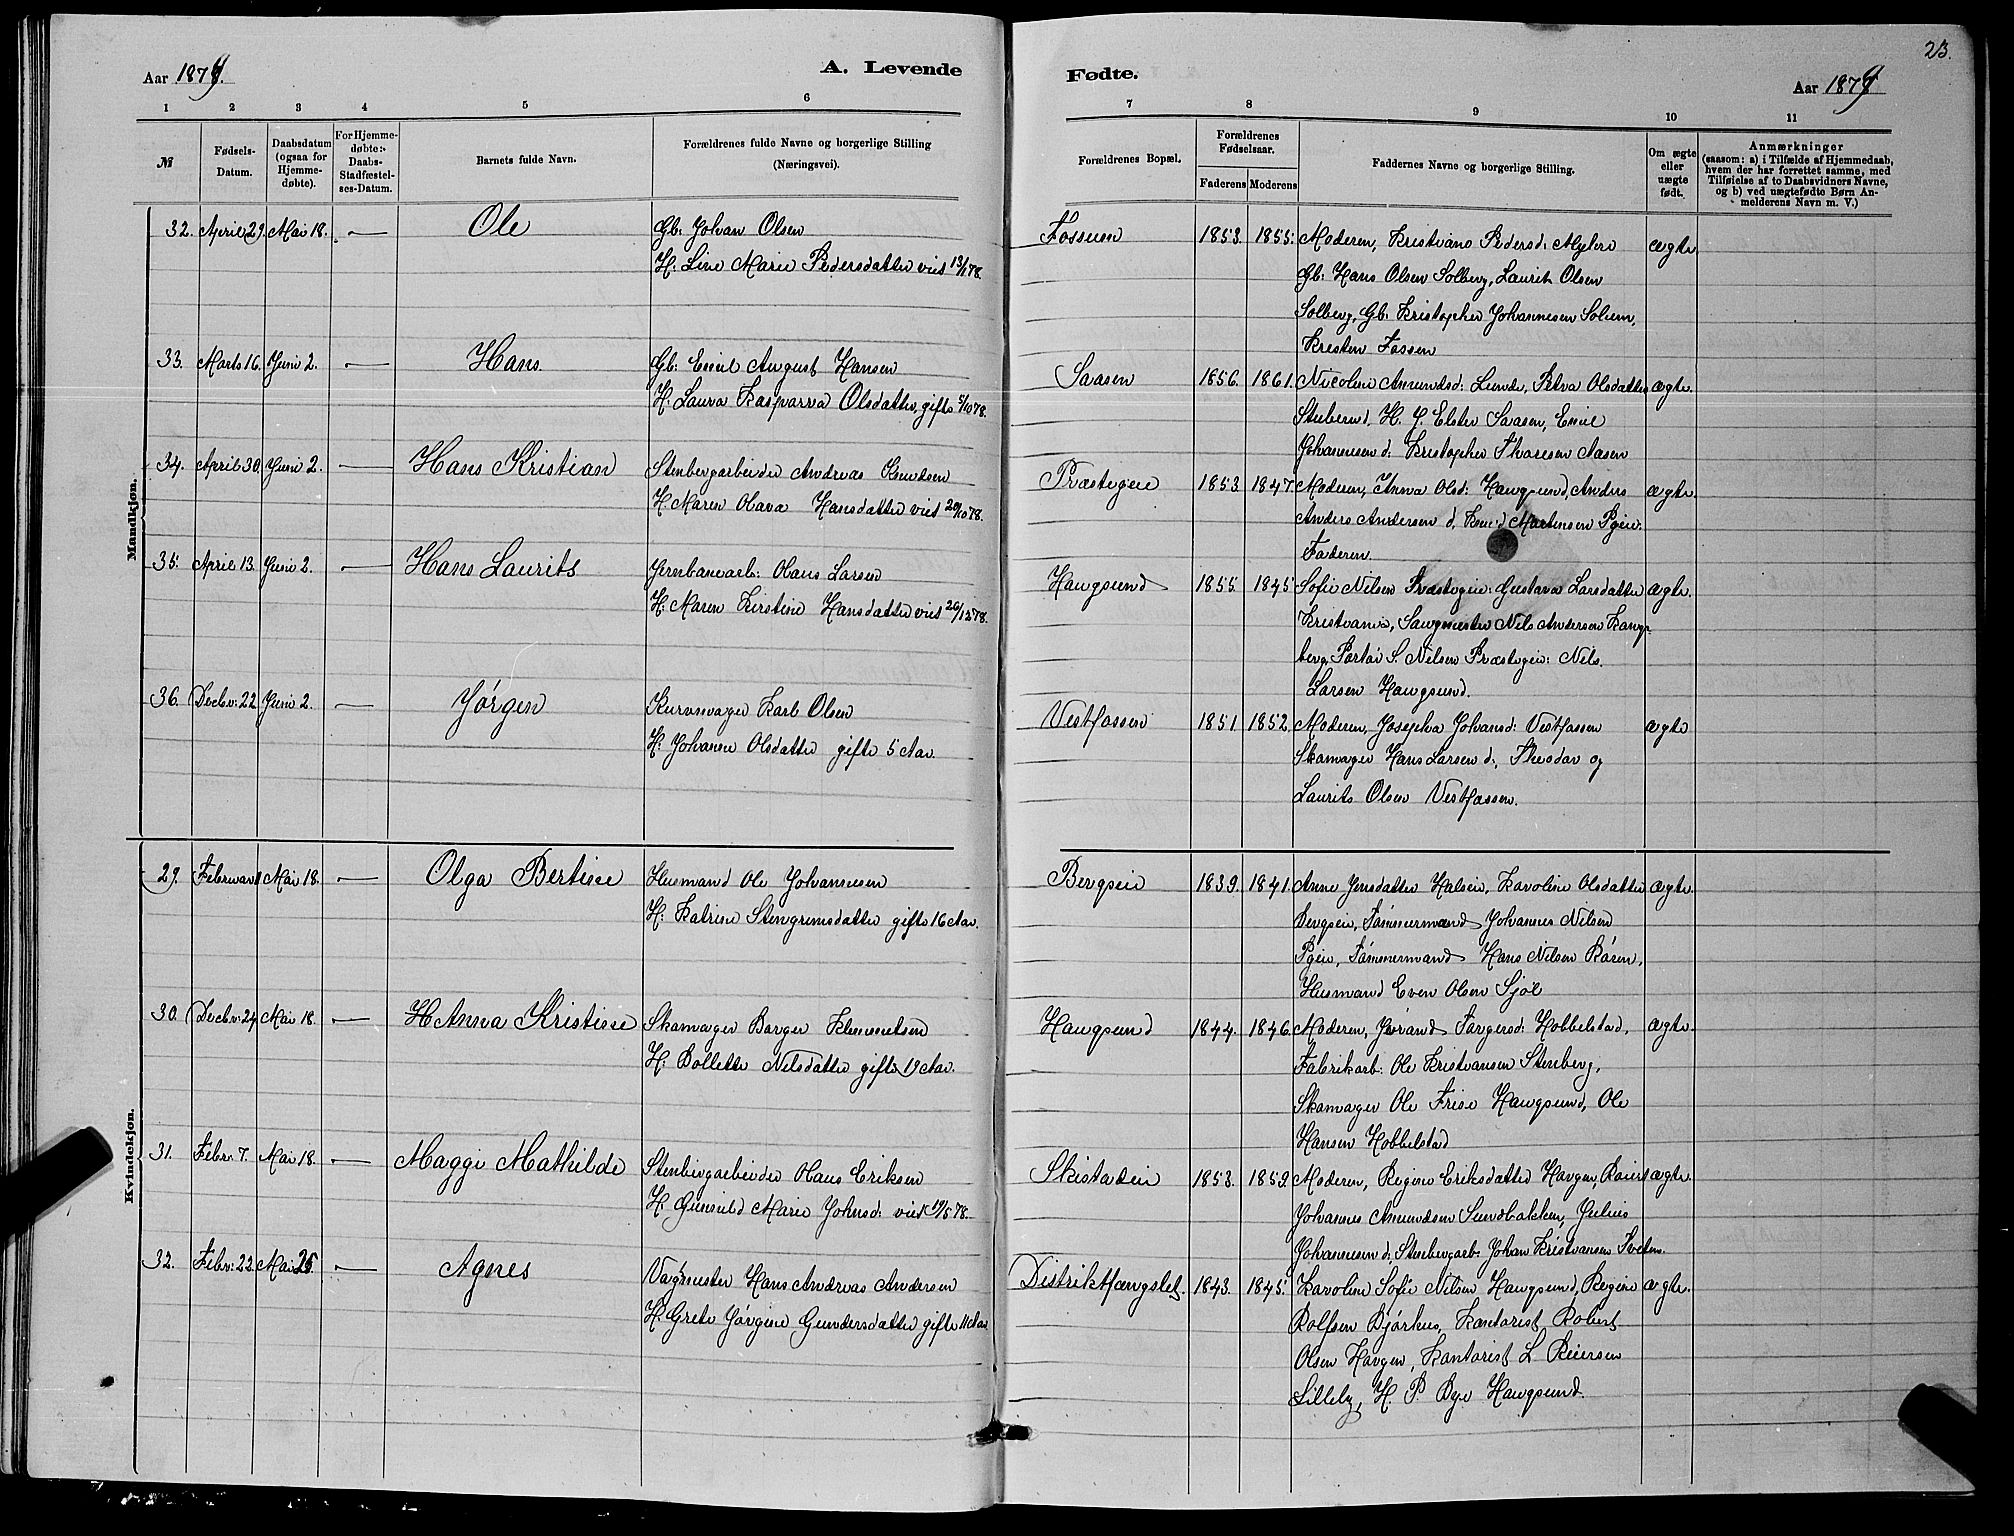 23.
Aar 1879.
A. Levende
Fødte.
Aar 1879
1 2 3 4 5 6 7 8 9 10 11
№
Fødsels-
Datum.
Daabsdatum
(ogsaa for
Hjemme-
døbte).
For Hjemme-
døbte:
Daabs-
Stadfæstel-
ses-Datum.
Barnets fulde Navn.
Forældrenes fulde Navne og borgerlige Stilling
(Næringsvei).
Forældrenes Bopæl.
Forældrenes
Fødselsaar.
Faderens Moderens
Faddernes Navne og borgerlige Stilling.
Om ægte
eller
uægte
født.
Anmærkninger
(saasom: a) i Tilfælde af Hjemmedaab,
hvem der har forrettet samme, med
Tilføielse af to Daabsvidners Navne,
og b) ved uægtefødte Børn An-
melderens Navn m. V.)
Mandkjøn.
32. April 29. Mai 18. — Ole Gb: Johan Olsen
H: Line Marie Pedersdatter viet 13/1 78.
Fossum 1853. 1855. Moderen, Kristiane Pedersd: Myhre ægte
Gb: Hans Olsen Solberg, Laurits Olsen
Solberg, Gb: Kristopher Johannesen Solum,
Kristen Fossen
33. Marts 16. Juni 2. — Hans Gb: Emil August Hansen
H: Laura Kasparva Olsdatter, gifte 5/10 78.
Saasen 1856. 1861. Nicoline Amundsd: Lunde, Petra Olsdatter ægte.
Stuberud, H. J. Elster Saasen, Emil
Johannesen d: Kristopher Thoresen Aasen
34. April 30. Juni 2. — Hans Kristian Stenbergarbeider Andreas Knudsen
H. Maren Olava Hansdatter viet 20/10 78.
Præsteeie 1853. 1847. Moderen, Anna Olsd: Haugsund, Anders ægte.
Anders Andersen d, Knud Martensen Peie.
Faderen.
35. April 13. Juni 2. — Hans Laurits Jernbanearb: Hans Larsen
H: Maren Kirstine Hansdatter viet 26/12 78.
Haugsund 1855. 1845 Sofie Nilsen Præsteeie: Gustava Larsdatter ægte.
Kristiania, Saugmester Nils Andersen Kongs-
berg, Portør S. Nilsen Præsteeie: Nils
Larsen Haugsund.
36. Decbr: 22 Juni 2. — Jørgen Kurvmager Karl Olsen
H: Johanne Olsdatter gifte 5 Aar.
Vestfossen 1851. 1852. Moderen, Josepha Johansd: Vestfossen ægte
Skomager Hans Larsen d:, Theodor og
Laurits Olsen Vestfossen.
Kvindekjøn.
29. Februar Mai 18. — Olga Bertine Husmand Ole Johannesen
H: Katrine Stengrimsdatter gifte 16 Aar.
Bergseie 1839. 1841. Anne Jensdatter Halseie, Karoline Olsdatter ægte.
Bergseie, Tømmermand Johannes Nilsen
Peie, Tømmermand Hans Nilsen Røren,
Husmand Even Olsen Sjøl
30. Decbr: 24 Mai 18. — H Anna Kristine Skomager Borger Klemetsen
H: Bollette Nilsdatter gifte 19 Aar.
Haugsund 1844. 1846. Moderen, Jørand Torgersd: Hobbelstad, ægte.
Fabrikarb: Ole Kristiansen Stenberg,
Skomager Ole Frise Haugsund, Ole
Hansen Hobbelstad
31. Febr: 7. Mai 18. — Maggi Mathilde Stenbergarbeider Hans Eriksen
H: Gunvild Marie Johnsd: viet 19/5 78.
Skistadeie 1853. 1859. Moderen, Regine Eriksdatter Haugen, ægte.
Johannes Amundsen Sundbakken, Julius
Johannesen d: Stenbergarb: Johan Kristiansen Tveten.
32. Febr: 22. Mai 25. — Agnes Vagtmester Hans Andreas Andersen
H: Grete Jørgine Gundersdatter gifte 11 Aar.
Distriktfængslet. 1843. 1845. Karoline Sofie Nilsen Haugsund, Regine ægte.
Rolfsen Bjørhus, Kontorist Robert
Olsen Haugen, Kontorist L Reiersen
Lilleby, H. P. Bye Haugsund.